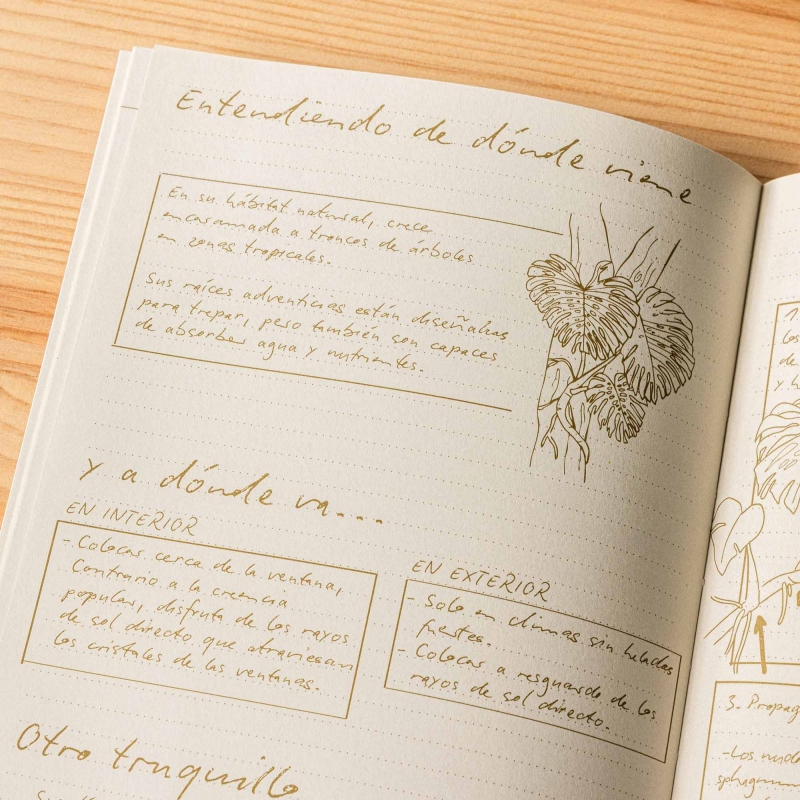 Entendiendo de dónde viene
En su hábitat natural, crece
encaramada a troncos de árboles
en zonas tropicales.
Sus raíces adventicias están diseñadas
para trepar, peso también son capaces
de absorber agua y nutrientes.
y a dónde va...
EN INTERIOR
- Colocar cerca de la ventana,
Contrario a la creencia
popular, disfruta de los rayos
de sol directo que atraviesan
los cristales de las ventanas.
EN EXTERIOR
- Solo en climas sin heladas
fuertes.
- Colocar a resguardo de los
rayos de sol directo.
Otro truquillo
1.
Los
de
y h
3. Propag
- Los nud
sphagnum